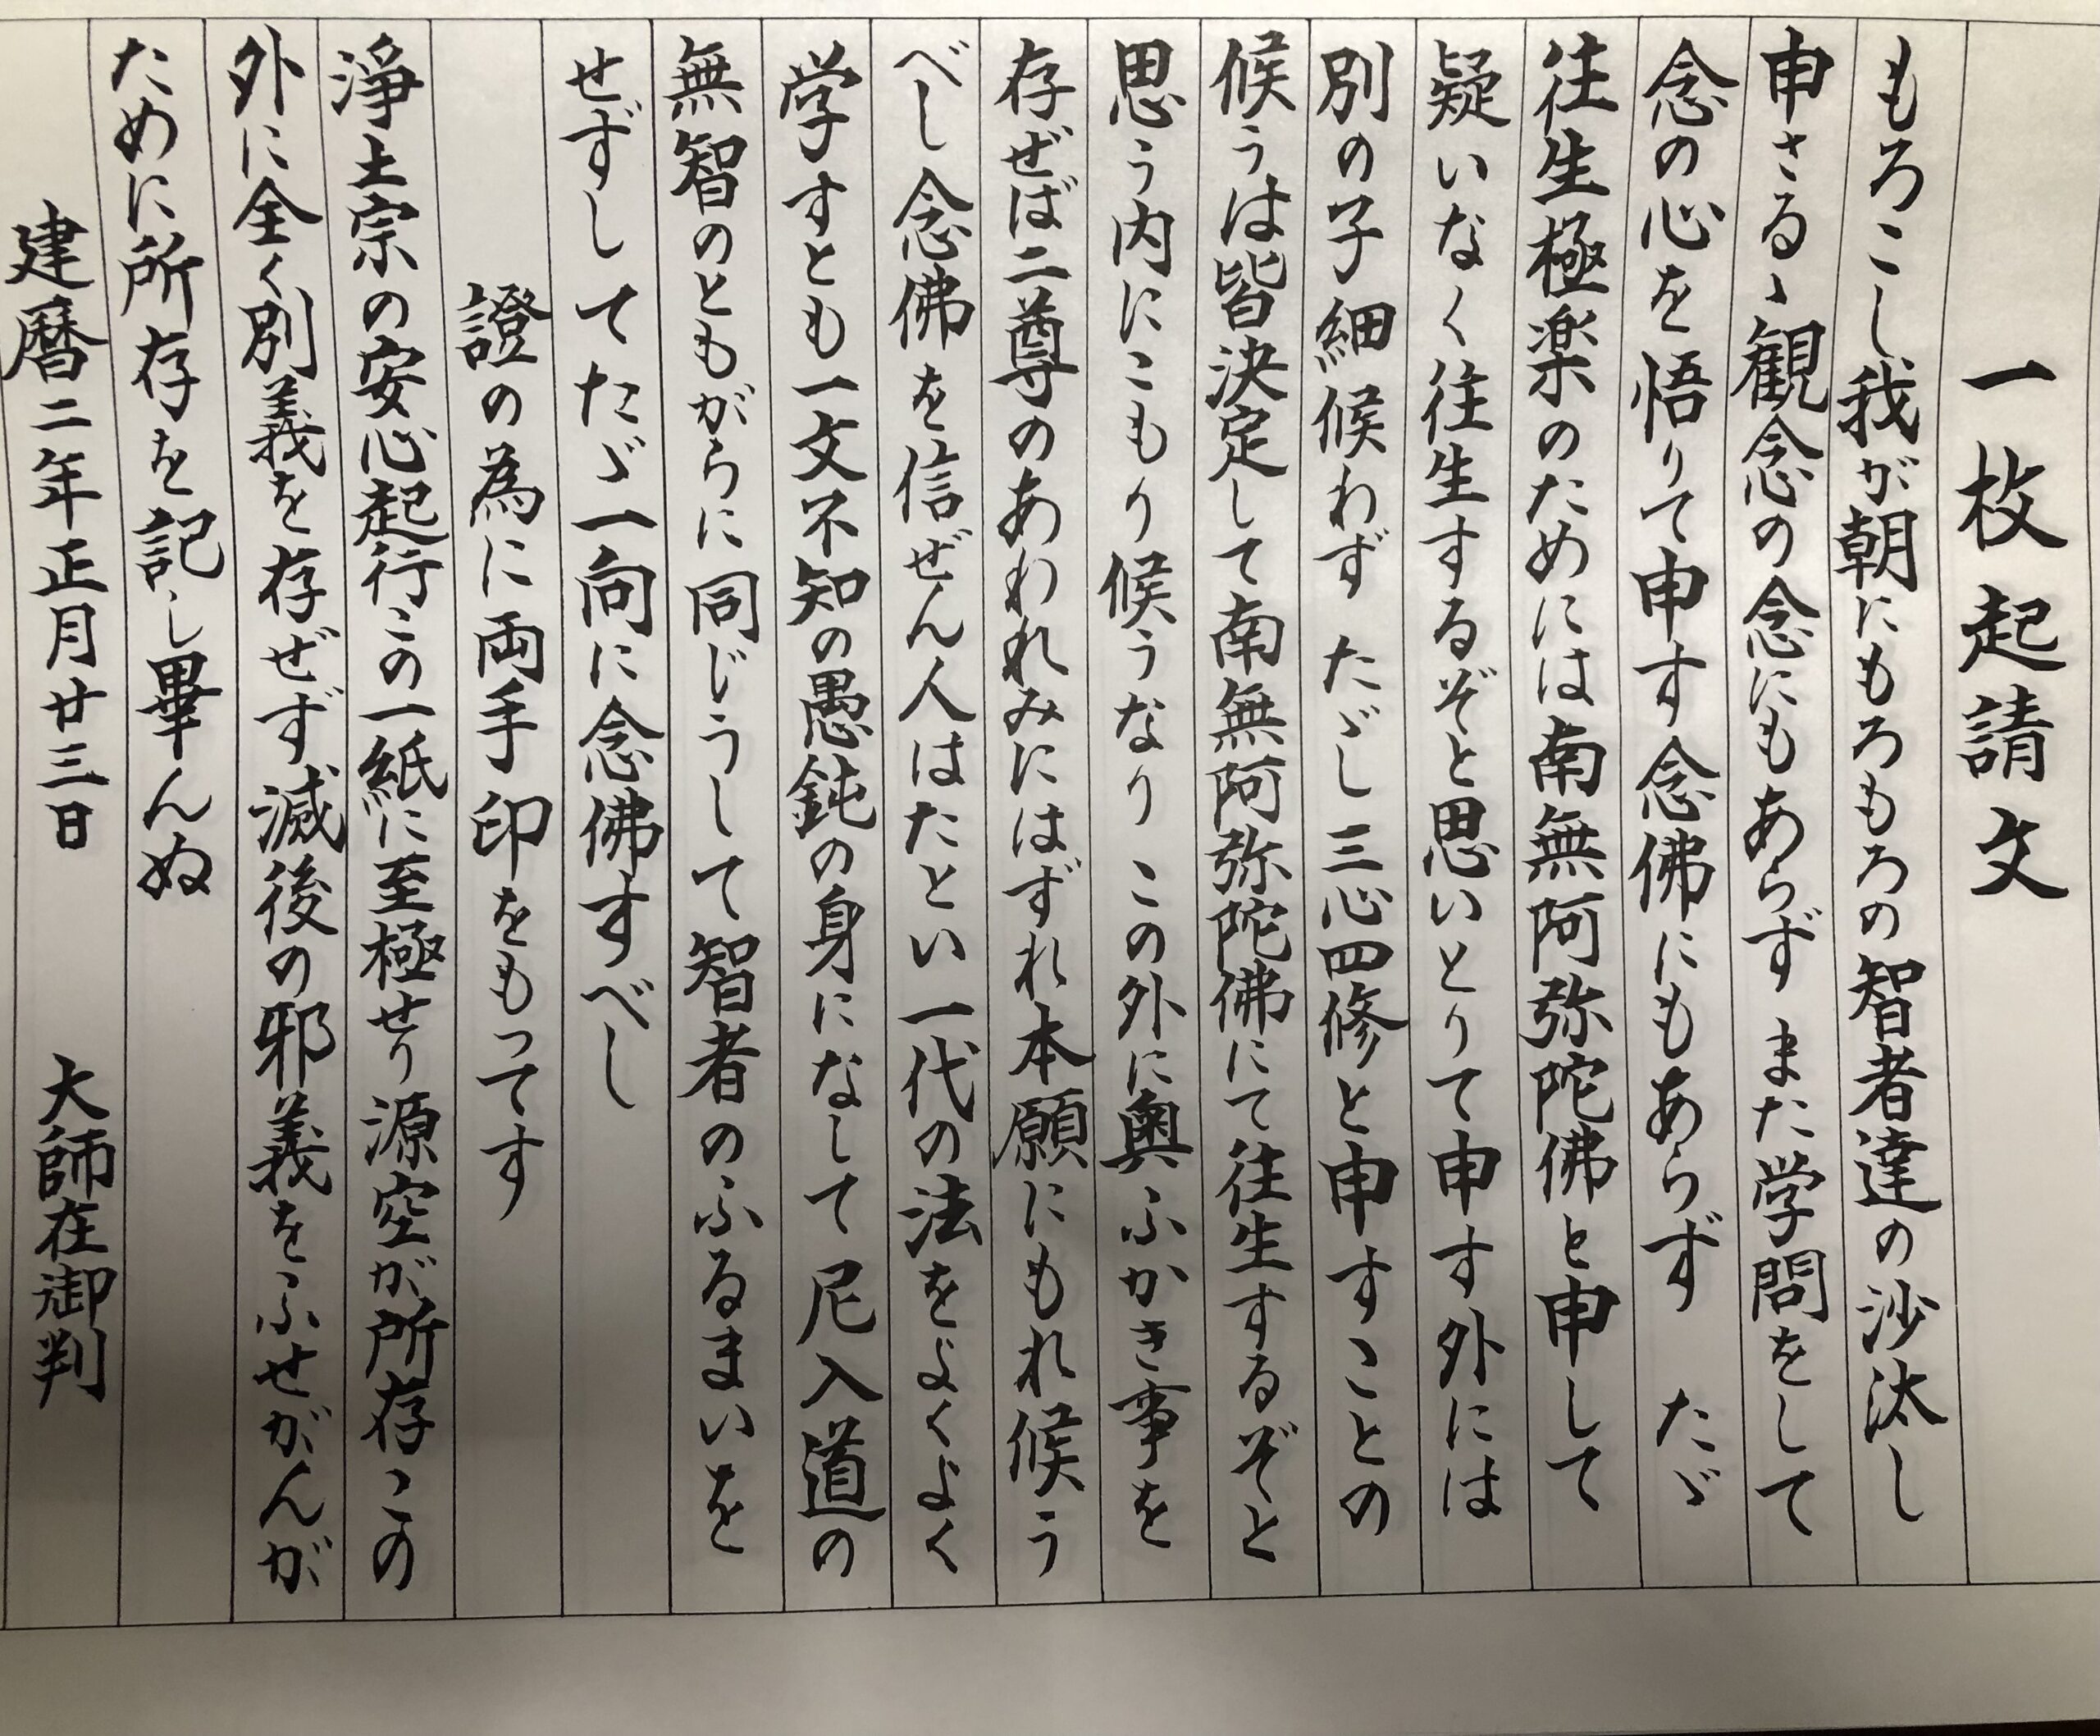 一枚起請文
もろこし我が朝にもろもろの智者達の沙汰し
申さるゝ観念の念にもあらずまた学問をして
念の心を悟りて申す念佛にもあらずたゞ
往生極楽のためには南無阿弥陀佛と申して
疑いなく往生するぞと思いとりて申す外には
別の子細候わずたゞし三心四修と申すことの
候うは皆決定して南無阿弥陀佛にて往生するぞと
思う内にこもり候うなりこの外に奥ふかき事を
存ぜば二尊のあわれみにはずれ本願にもれ候う
べし念佛を信ぜん人はたとい一代の法をよくよく
学すとも一文不知の愚鈍の身になして尼入道の
無智のともがらに同じうして智者のふるまいを
せずしてたゞ一向に念佛すべし
證の為に両手印をもってす
浄土宗の安心起行この一紙に至極せり源空が所存この
外に全く別義を存ぜず滅後の邪義をふせがんが
ために所存を記し畢んぬ
建暦二年正月廿三日 大師在御判